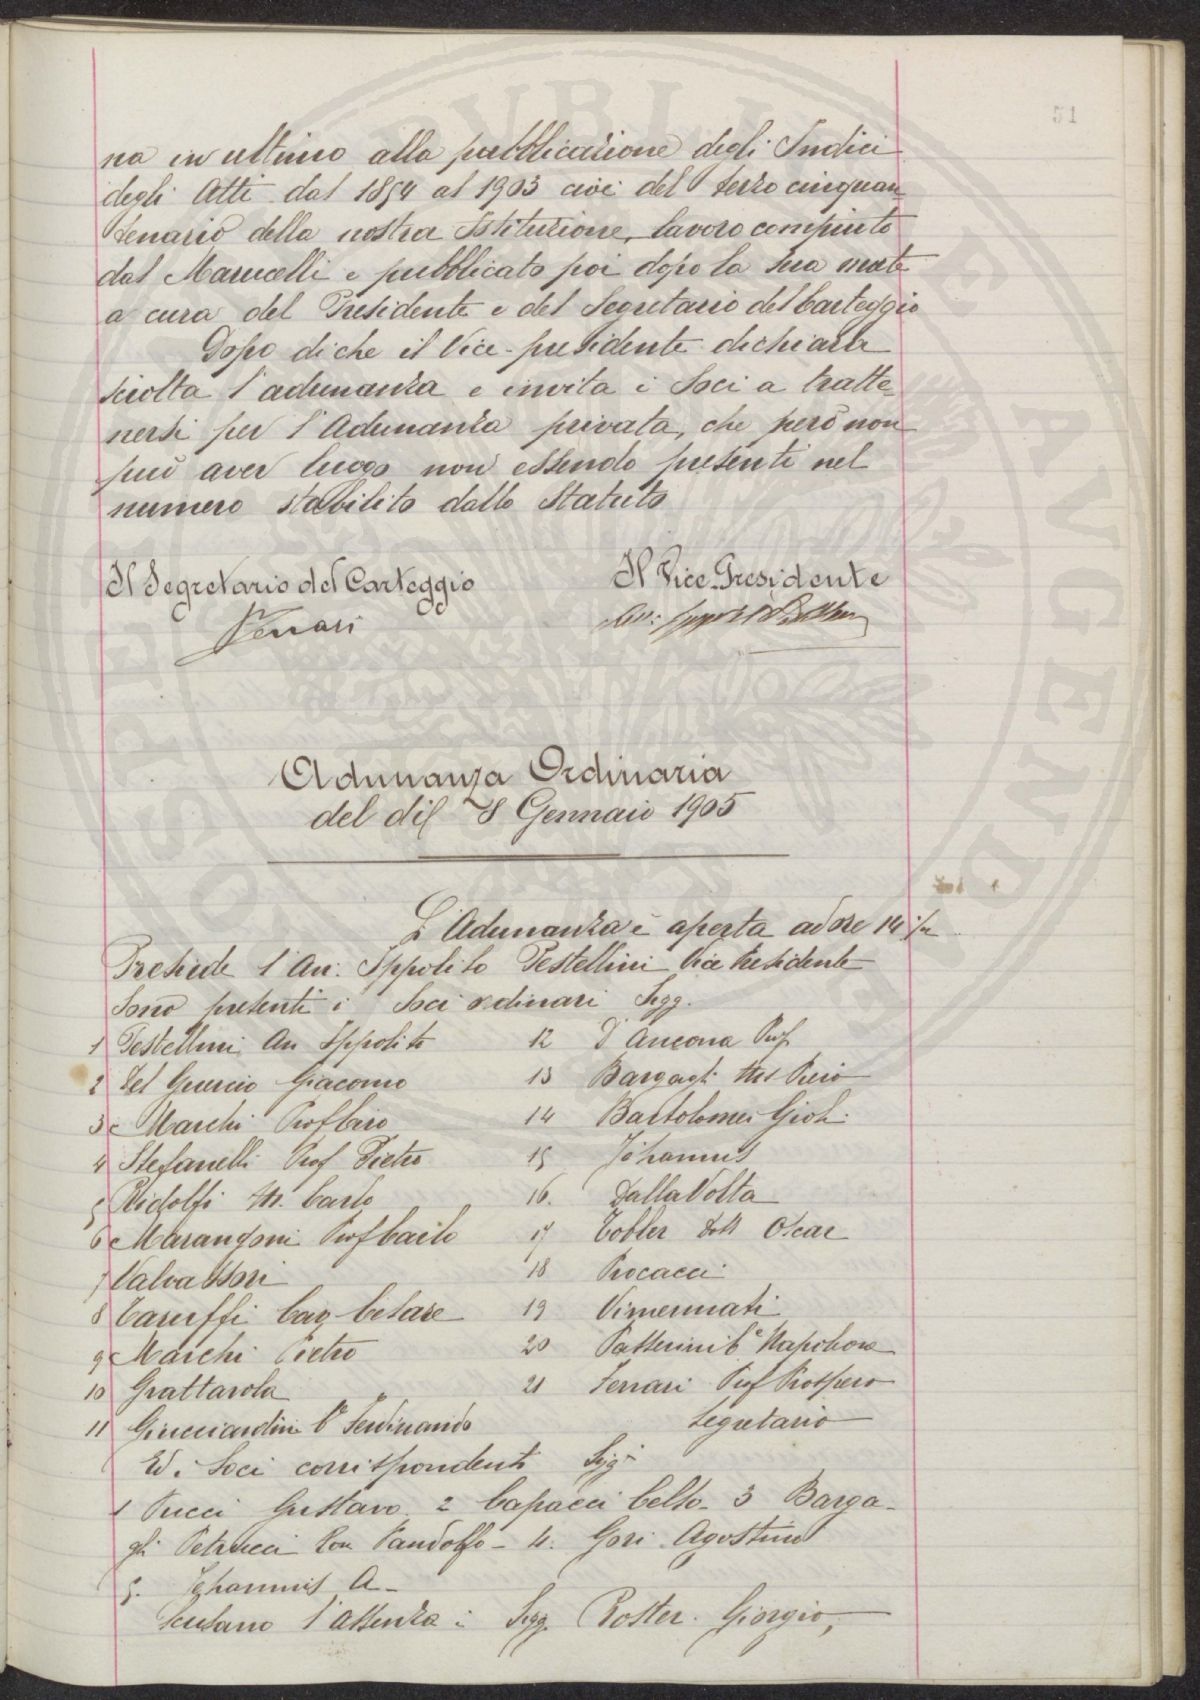 51
na in ultimo alla pubblicazione degli Indici
degli Atti dal 1854 al 1903 cioè del terzo cinquan
tenario della nostra Istituzione, lavoro compiuto
dal Marucelli e pubblicato poi dopo la sua morte
a cura del Presidente e del Segretario del Carteggio
Dopo di che il Vice-presidente dichiara
sciolta l'adunanza e invita i Soci a tratte
nersi per l'Adunanza privata, che però non
può aver luogo non essendo presenti nel
numero stabilito dallo Statuto
Il Segretario del Carteggio
Il Vice-Presidente
Ferrari
Adunanza Ordinaria
del dì 8 Gennaio 1905
L'Adunanza è aperta ad ore 14 ½
Presiede l'Avv. Ippolito Pestellini Vice Presidente
Sono presenti i Soci ordinari Sigg.
1 Pestellini Avv Ippolito
2 Del Guercio Giacomo
3 Marchi Prof Ciro
4 Stefanelli Prof Pietro
5 Ridolfi M. Carlo
6 Marangoni Prof Carlo
7 Valvassori
8 Taruffi Cav Cesare
9 Marchi Pietro
10 Grattarola
11 Guicciardini Cte Ferdinando
12 D'Ancona Prof
13 Bargagli Mse Piero
14 Bartolomei Gioli
15 Johannis
16. Dalla Volta
17 Tobler Dott Oscar
18 Procacci
19 Vimercati
20 Passerini Ce Napoleone
21 Ferrari Prof Prospero
Segretario
Ed i Soci corrispondenti Sigg.i
1 Pucci Gustavo 2 Capacci Celso - 3 Barga-
gli Petrucci Pandolfo - 4. Gori Agostino
5. Johannis A -
Scusano l'assenza i Sigg. Roster Giorgio,